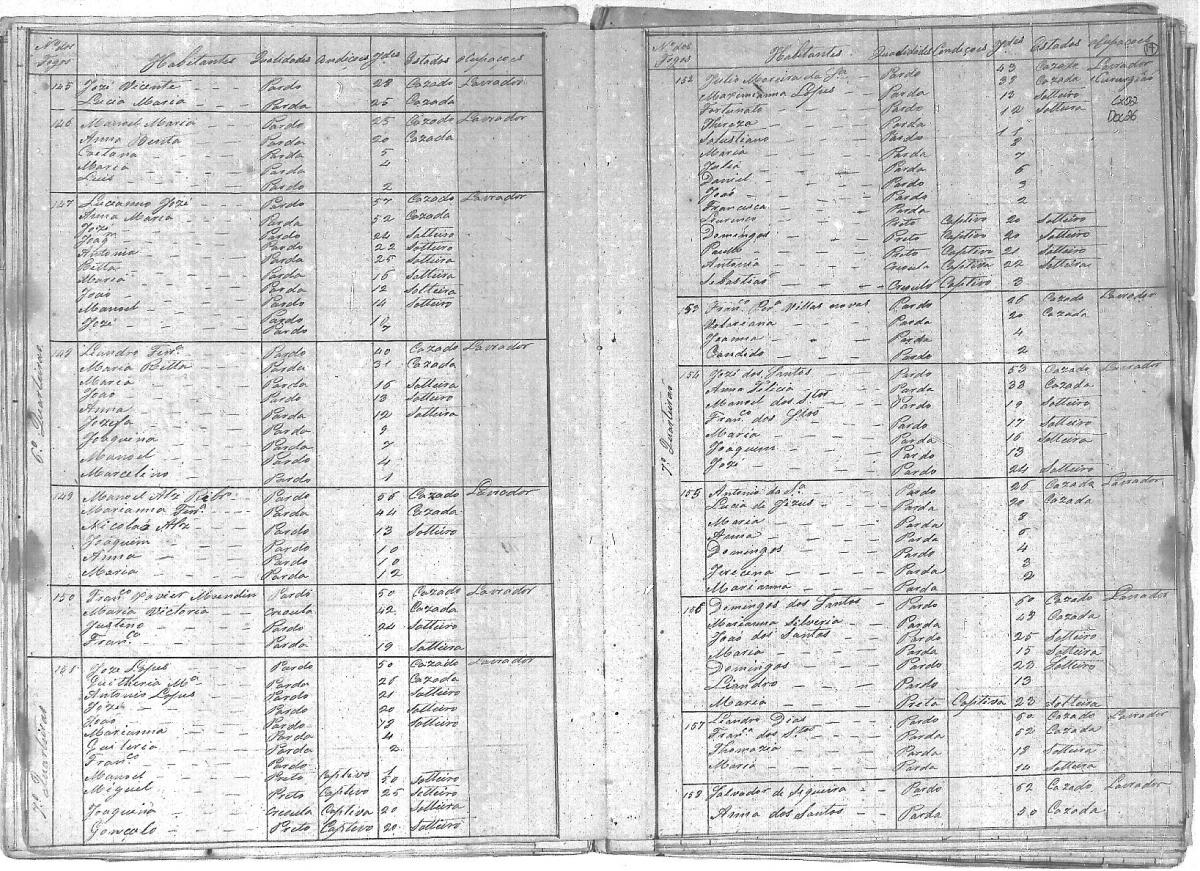 Nº dos Fogos Habitantes Qualidades Condiçoes Ydes Estados Occupaçoes
145 Jozé Vicente Pardo 28 Cazado Lavrador
Lucia Maria Parda 25 Cazada
146 Manoel Maria Pardo 25 Cazado Lavrador
Anna Benta Parda 20 Cazada
Caetana Parda 5
Maria Parda 4
Luis Pardo 2
147 Lucianno Jozé Pardo 57 Cazado Lavrador
Anna Maria Parda 52 Cazada
Jozé Pardo 24 Solteiro
Joaqm Pardo 22 Solteiro
Antonia Parda 25 Solteira
Ritta Parda 16 Solteira
Maria Parda 12 Solteira
João Pardo 14 Solteiro
Manoel Pardo 10
Jozé Pardo 7
6º Quarteirão
148 Leandro Ferª Pardo 40 Cazado Lavrador
Maria Ritta Parda 31 Cazada
Maria Parda 16 Solteira
João Pardo 13 Solteiro
Anna Parda 12 Solteira
Jozefa Parda 9
Joaquina Parda 7
Manoel Pardo 4
Marcelino Pardo 1
149 Manoel Alz Ribrº Pardo 56 Cazado Lavrador
Marianna Ferª Parda 44 Cazada
Nicoláo Alz Pardo 13 Solteiro
Joaquim Pardo 10
Anna Parda 10
Maria Parda 12
150 Franco Xavier Mendin Pardo 50 Cazado Lavrador
Maria Victoria Creoula 42 Cazada
Justino Pardo 24 Solteiro
Franca Parda 19 Solteira
7º Quarteirão
151 Jozé Lopes Pardo 50 Cazado Lavrador
Quitheria Mª Parda 26 Cazada
Antonio Lopes Pardo 21 Solteiro
Jozé Pardo 20 Solteiro
João Pardo 13 Solteiro
Marianna Parda 4
Quiteria Parda 2
Franco Pardo 1
Manoel Preto Captivo 50 Solteiro
Miguel Preto Captivo 25 Solteiro
Joaquina Creoula Captiva 20 Solteira
Gonçalo Preto Captivo 20 Solteiro
Nº dos Fogos Habitantes Qualidades Condiçoes Ydes Estados Occupaçoes
152 Julio Moreira da Sª Pardo 43 Cazado Lavrador
Marimianna Lopes Parda 32 Cazada Cirurgião
Fortunato Pardo 13 Solteiro
Thereza Parda 12 Solteira
Salustiano Pardo 11
Maria Parda 8
Julia Parda 7
Daniel Pardo 6
João Pardo 3
Francisca Parda 2
Lourenço Preto Captivo 20 Solteiro
Domingos Preto Captivo 20 Solteiro
Paullo Preto Captivo 21 Solteiro
Antonia Creoula Captiva 22 Solteira
Sebastião Creoulo Captivo 3
Cx 22
Doc 86
153 Franco Perª Villas novas Pardo 26 Cazado Lavrador
Velariana Parda 20 Cazada
Joanna Parda 4
Candido Pardo 2
7º Quarteirão
154 Jozé dos Santos Pardo 53 Cazado Lavrador
Anna Felicia Parda 38 Cazada
Manoel dos Stos Pardo 19 Solteiro
Franco dos Stos Pardo 17 Solteiro
Maria Parda 16 Solteira
Joaquim Pardo 13
Jozé Pardo 24 Solteiro
155 Antonio da Sª Pardo 26 Cazado Lavrador
Lucia de Jezus Parda 20 Cazada
Maria Parda 8
Anna Parda 6
Domingos Pardo 4
Jrecena Parda 3
Marianna Parda 2
156 Domingos dos Santos Pardo 60 Cazado Lavrador
Marianna Silveria Parda 49 Cazada
João dos Santos Pardo 25 Solteiro
Maria Parda 15 Solteira
Domingos Pardo 23 Solteiro
Liandro Pardo 13
Maria Preta Captiva 23 Solteira
157 Leandro Dias Pardo 60 Cazado Lavrador
Franca dos Stos Parda 52 Cazada
Thomazia Parda 18 Solteira
Maria Parda 14 Solteira
158 Salvador de Siqueira Pardo 62 Cazado Lavrador
Anna dos Santos Parda 50 Cazada